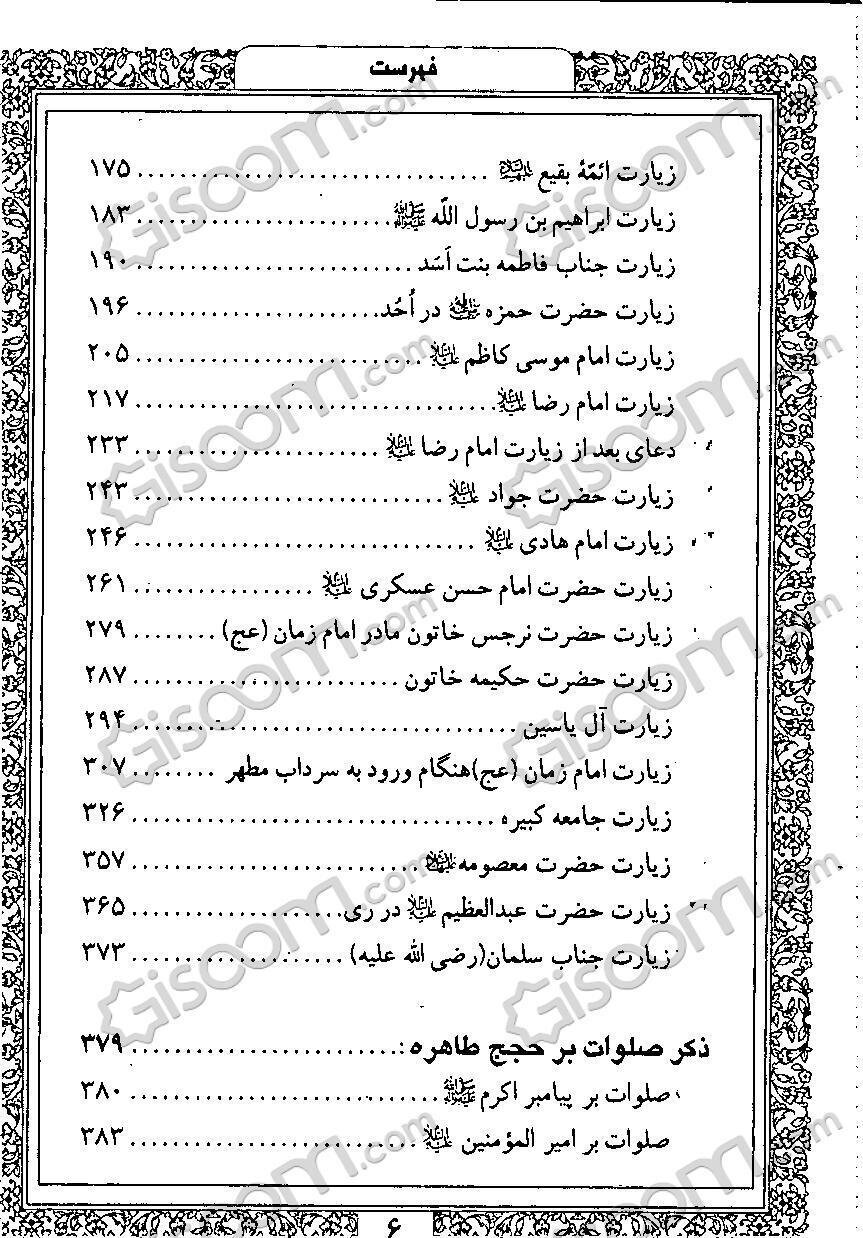 فهرست
زیارت ائمّهٔ بقیع علیهم‌السلام .................................. ۱۷۵
زیارت ابراهیم بن رسول اللّه ﷺ ........................ ۱۸۳
زیارت جناب فاطمه بنت اَسَد ........................... ۱۹۰
زیارت حضرت حمزه در اُحُد ........................ ۱۹۶
زیارت امام موسی کاظم علیه‌السلام ............................ ۲۰۵
زیارت امام رضا علیه‌السلام ................................... ۲۱۷
دعای بعد از زیارت امام رضا علیه‌السلام ........................ ۲۳۳
زیارت حضرت جواد علیه‌السلام .............................. ۲۴۳
زیارت امام هادی علیه‌السلام ................................. ۲۴۶
زیارت حضرت امام حسن عسکری علیه‌السلام ................. ۲۶۱
زیارت حضرت نرجس خاتون مادر امام زمان (عج) ........ ۲۷۹
زیارت حضرت حکیمه خاتون .......................... ۲۸۷
زیارت آل یاسین ..................................... ۲۹۴
زیارت امام زمان (عج)هنگام ورود به سرداب مطهر ........ ۳۰۷
زیارت جامعه کبیره ................................... ۳۲۶
زیارت حضرت معصومه ............................ ۳۵۷
زیارت حضرت عبدالعظیم علیه‌السلام در ری .................... ۳۶۵
زیارت جناب سلمان(رضی الله علیه) .................... ۳۷۳
ذکر صلوات بر حجج طاهره: .......................... ۳۷۹
صلوات بر پیامبر اکرم ﷺ .............................. ۳۸۰
صلوات بر امیر المؤمنین علیه‌السلام ............................ ۳۸۳
۶
Giscoom.com